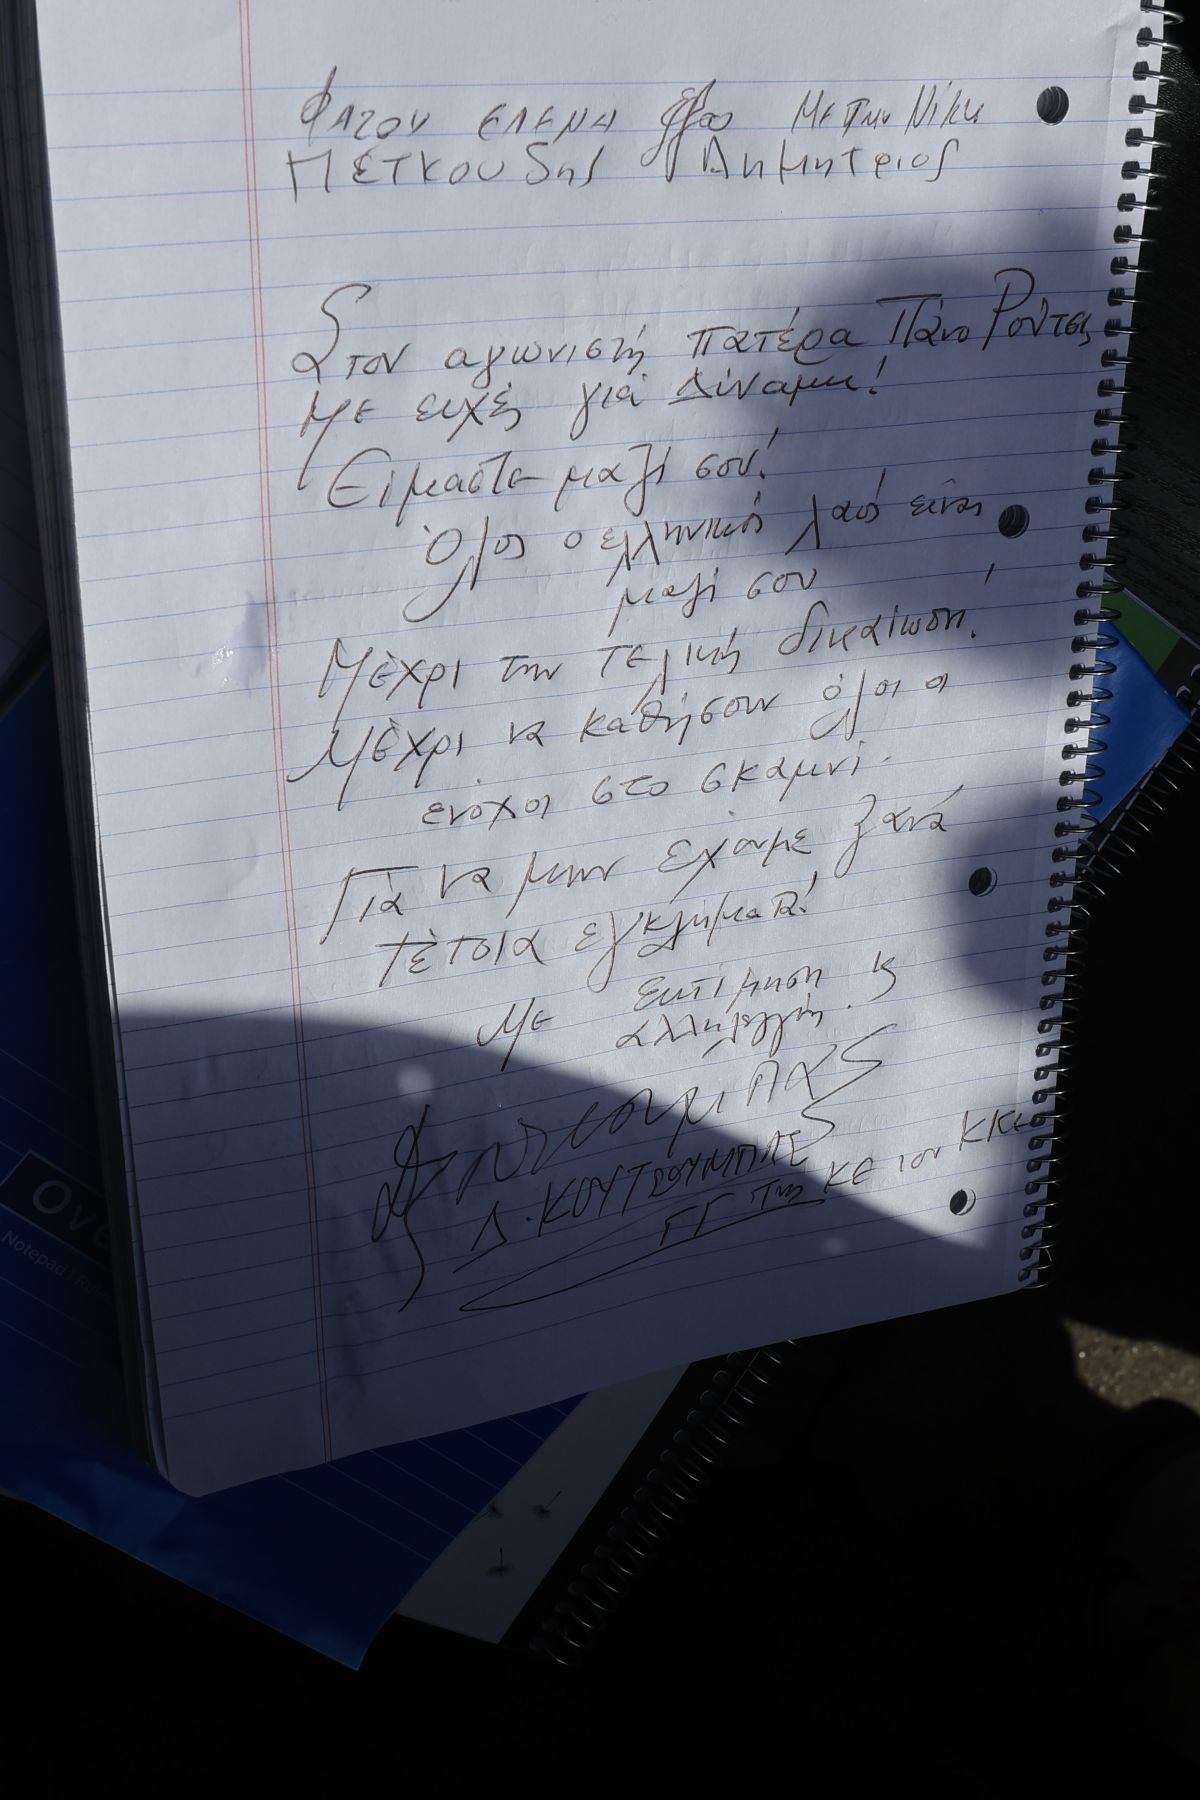 ΦΑΤΟΥ ΕΛΕΝΗ Με την Νίκη
ΠΕΤΚΟΥδης Δημητριος
Στον αγωνιστή πατέρα Πάνο Ρούτσι
Με ευχές για Δύναμη!
Είμαστε μαζί σου!
Όλος ο ελληνικός λαός είναι
μαζί σου
Μέχρι την τελική δικαίωση!
Μέχρι να καθήσουν όλοι οι
ενόχοι στο σκαμνί.
Για να μην έχουμε ξανά
τέτοια εγκλήματα!
Με εκτίμηση κ
αλληλεγγύη.
Δ. ΚΟΥΤΣΟΥΜΠΑΣ
ΓΓ της ΚΕ του ΚΚΕ
Ove
Notepad | Rul